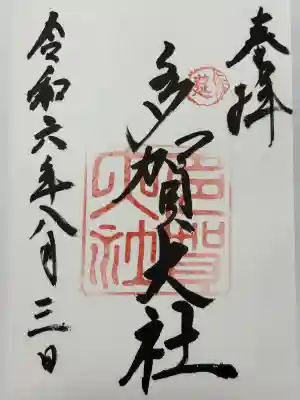 奉拝
多賀大社
多賀大社
令和六年八月三日